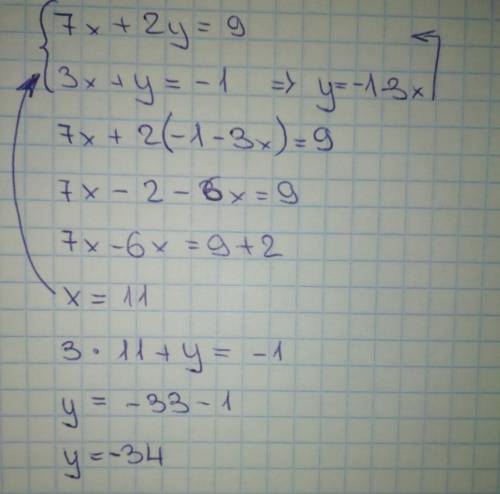 7x + 2y = 9
3x + y = -1 => y = -1-3x
7x + 2(-1-3x) = 9
7x - 2 - 6x = 9
7x - 6x = 9 + 2
x = 11
3 · 11 + y = -1
y = -33 - 1
y = -34